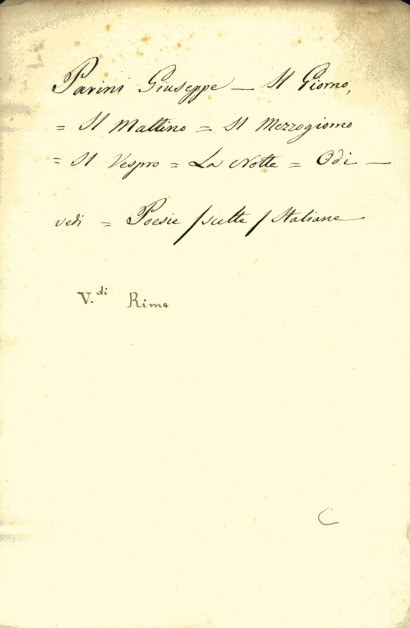 Parini Giuseppe — Il Giorno,
= Il Mattino = Il Mezzogiorno
= Il Vespro = La Notte = Odi —
vedi = Poesie scelte Italiane
V.di Rime
C